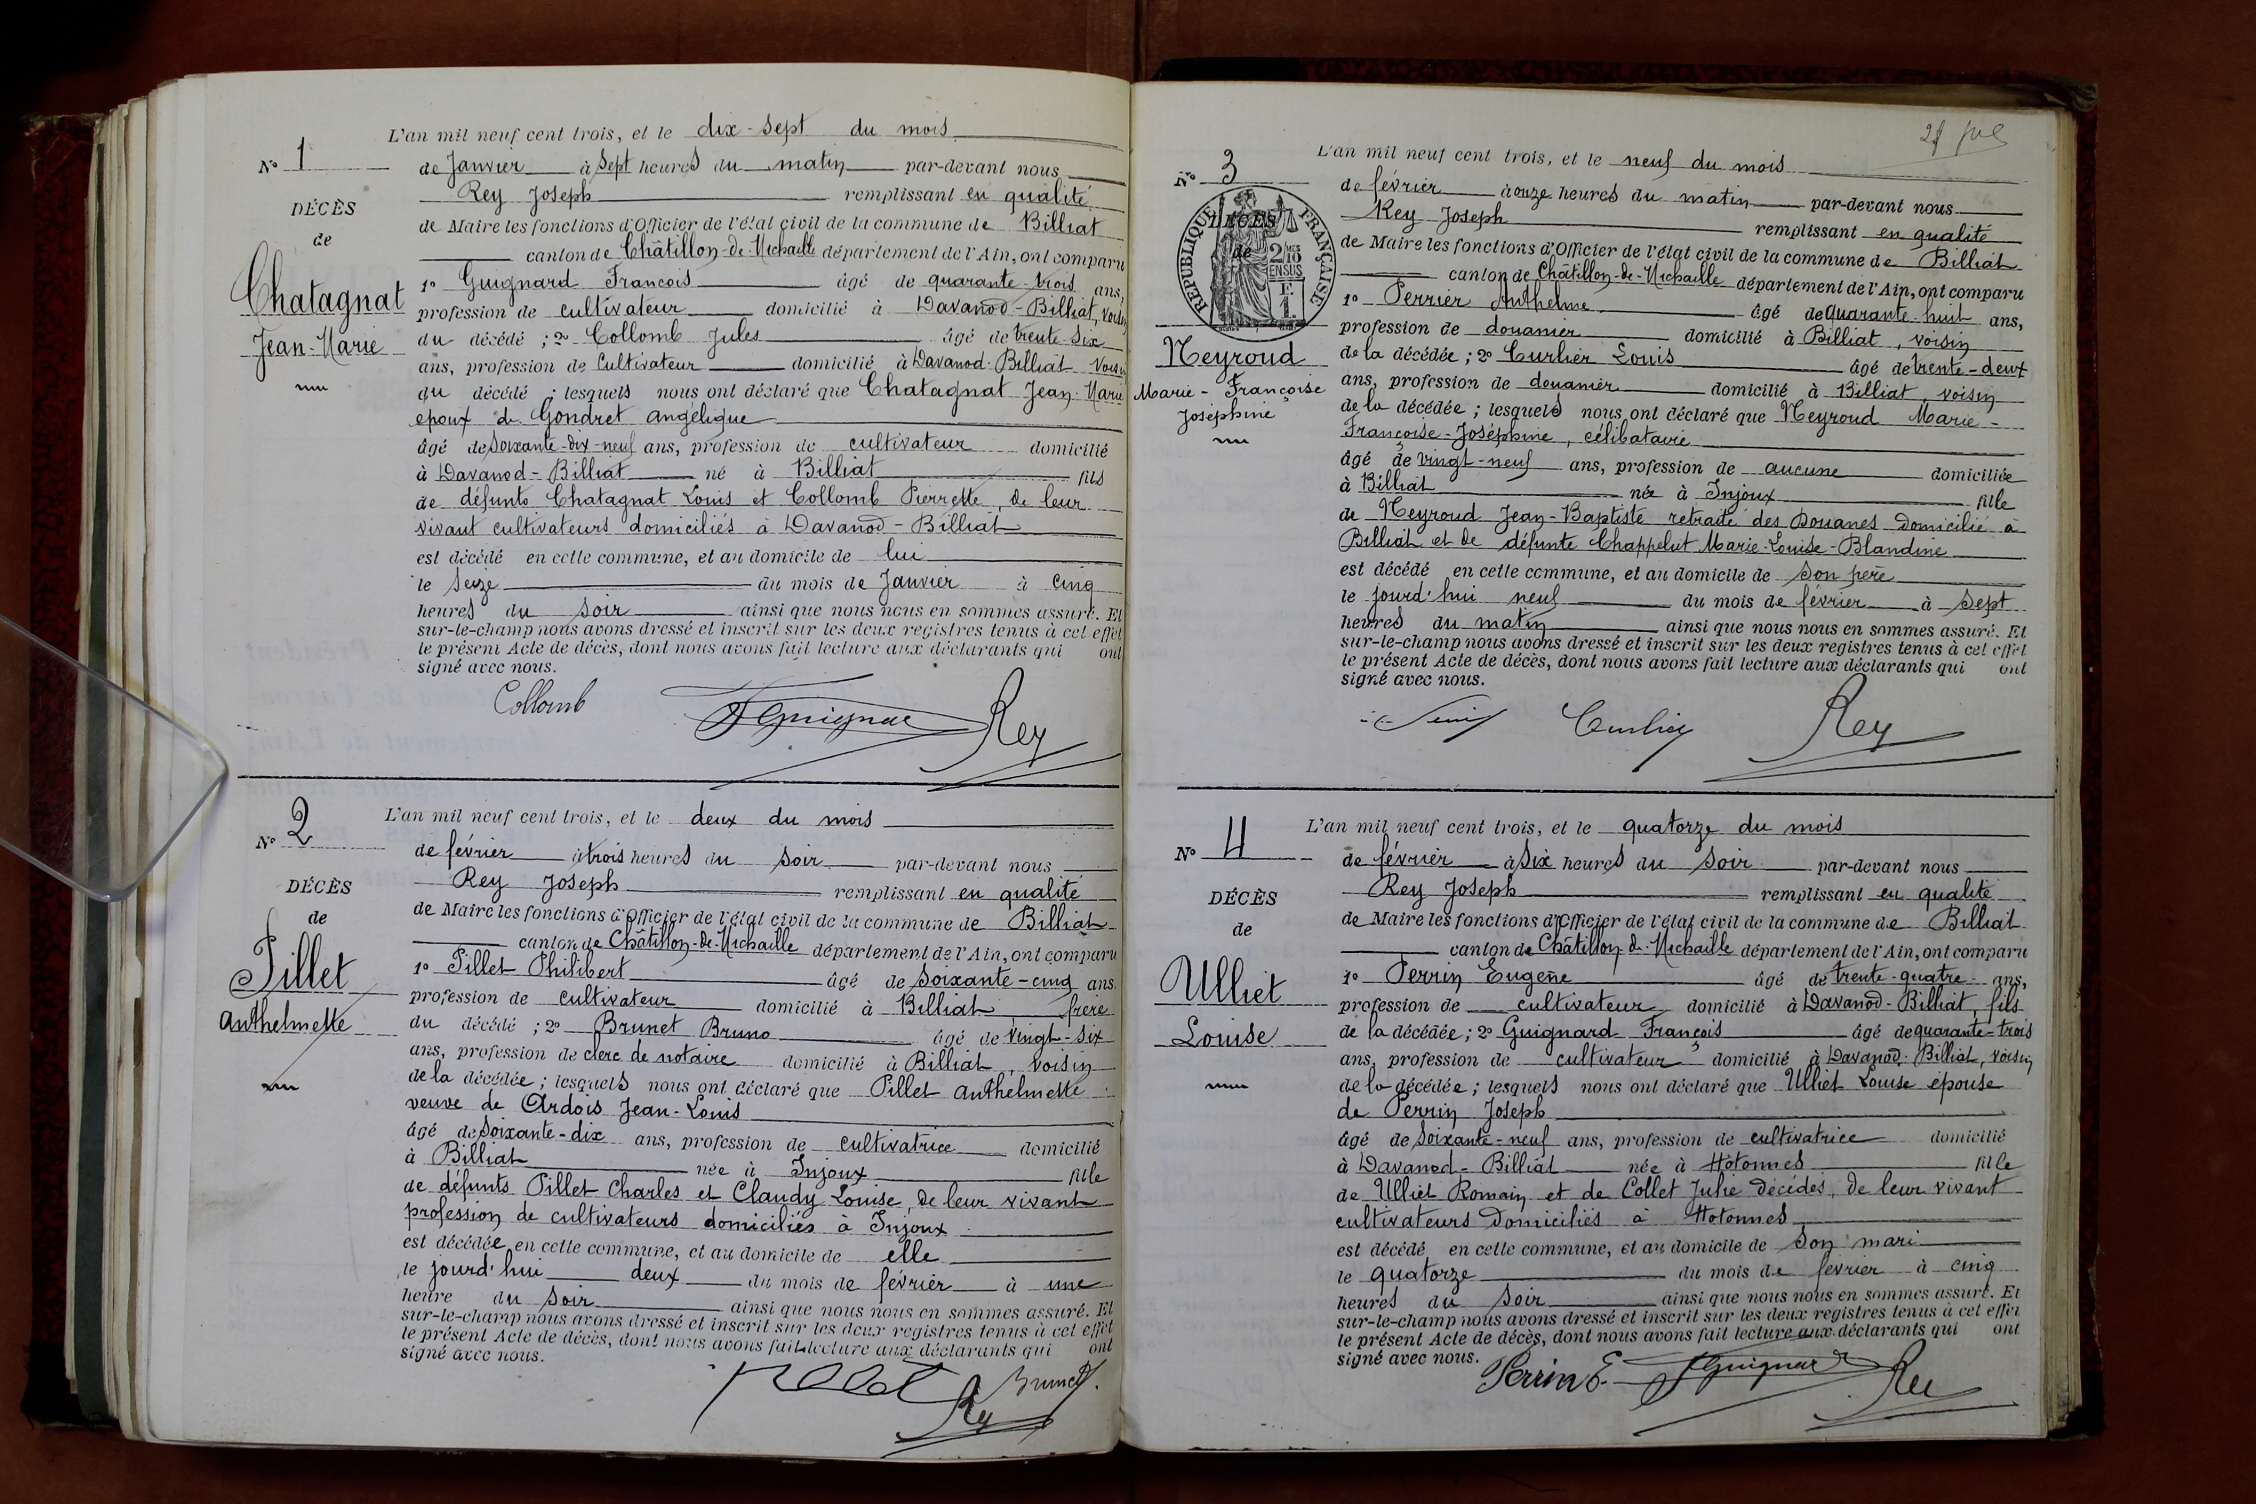 L'an mil neuf cent trois, et le dix-sept du mois
N° 1
de Janvier à sept heures du matin par-devant nous
Rey Joseph remplissant en qualité
DÉCÈS
de Maire les fonctions d'Officier de l'état civil de la commune de Billiat
de
canton de Châtillon-de-Michaille département de l'Ain, ont comparu
Chatagnat
1° Guignard François âgé de quarante-trois ans,
profession de cultivateur domicilié à Davanod-Billiat, voisin
Jean-Marie
du décédé ; 2° Collomb Jules âgé de trente-six
ans, profession de cultivateur domicilié à Davanod-Billiat voisin
du décédé ; lesquels nous ont déclaré que Chatagnat Jean-Marie
époux de Gondret angélique
âgé de soixante-dix-neuf ans, profession de cultivateur domicilié
à Davanod-Billiat né à Billiat fils
de défunts Chatagnat Louis et Collomb Pierrette, de leur
vivant cultivateurs domiciliés à Davanod-Billiat
est décédé en cette commune, et au domicile de lui
le seize du mois de Janvier à cinq
heures du soir ainsi que nous nous en sommes assuré. Et
sur-le-champ nous avons dressé et inscrit sur les deux registres tenus à cet effet
le présent Acte de décès, dont nous avons fait lecture aux déclarants qui ont
signé avec nous.
Collomb F Guignard Rey
L'an mil neuf cent trois, et le deux du mois
N° 2
de février à trois heures du soir par-devant nous
Rey Joseph remplissant en qualité
DÉCÈS
de Maire les fonctions d'Officier de l'état civil de la commune de Billiat
de
canton de Châtillon-de-Michaille département de l'Ain, ont comparu
Pillet
1° Pillet Philibert âgé de soixante-cinq ans
profession de cultivateur domicilié à Billiat, frère
anthelmette
du décédé ; 2° Brunet Bruno âgé de vingt-six
ans, profession de clerc de notaire domicilié à Billiat, voisin
de la décédée ; lesquels nous ont déclaré que Pillet anthelmette
veuve de Ardois Jean-Louis
âgé de soixante-dix ans, profession de cultivatrice domicilié
à Billiat née à Injoux fille
de défunts Pillet Charles et Claudy Louise, de leur vivant
profession de cultivateurs domiciliés à Injoux
est décédée en cette commune, et au domicile de elle
le jourd'hui deux du mois de février à une
heure du soir ainsi que nous nous en sommes assuré. Et
sur-le-champ nous avons dressé et inscrit sur les deux registres tenus à cet effet
le présent Acte de décès, dont nous avons fait lecture aux déclarants qui ont
signé avec nous.
Pillet Rey Brunet
L'an mil neuf cent trois, et le neuf du mois
N° 3
de février à onze heures du matin par-devant nous
Rey Joseph remplissant en qualité
RÉPUBLIQUE FRANÇAISE
DÉCÈS
de
de Maire les fonctions d'Officier de l'état civil de la commune de Billiat
canton de Châtillon-de-Michaille département de l'Ain, ont comparu
1° Perrier Anthelme âgé de quarante-huit ans,
profession de douanier domicilié à Billiat, voisin
Neyroud
de la décédée ; 2° Curlier Louis âgé de trente-deux
Marie-Françoise
ans, profession de douanier domicilié à Billiat, voisin
Joséphine
de la décédée ; lesquels nous ont déclaré que Neyroud Marie-
Françoise-Joséphine, célibataire
âgé de vingt-neuf ans, profession de aucune domiciliée
à Billiat née à Injoux fille
de Neyroud Jean-Baptiste retraité des Douanes domicilié à
Billiat et de défunte Chappelut Marie-Louise-Blandine
est décédé en cette commune, et au domicile de son père
le jourd'hui neuf du mois de février à sept
heures du matin ainsi que nous nous en sommes assuré. Et
sur-le-champ nous avons dressé et inscrit sur les deux registres tenus à cet effet
le présent Acte de décès, dont nous avons fait lecture aux déclarants qui ont
signé avec nous.
Curlier Rey
L'an mil neuf cent trois, et le quatorze du mois
N° 4
de février à six heures du soir par-devant nous
Rey Joseph remplissant en qualité
DÉCÈS
de Maire les fonctions d'Officier de l'état civil de la commune de Billiat
de
canton de Châtillon-de-Michaille département de l'Ain, ont comparu
Ulliet
1° Perrin Eugène âgé de trente-quatre ans,
profession de cultivateur domicilié à Davanod-Billiat, fils
Louise
de la décédée ; 2° Guignard François âgé de quarante-trois
ans, profession de cultivateur domicilié à Davanod-Billiat, voisin
de la décédée ; lesquels nous ont déclaré que Ulliet Louise épouse
de Perrin Joseph
âgé de soixante-neuf ans, profession de cultivatrice domicilié
à Davanod-Billiat née à Hotonnes fille
de Ulliet Romain et de Collet Julie décédés, de leur vivant
cultivateurs domiciliés à Hotonnes
est décédé en cette commune, et au domicile de son mari
le quatorze du mois de février à cinq
heures du soir ainsi que nous nous en sommes assuré. Et
sur-le-champ nous avons dressé et inscrit sur les deux registres tenus à cet effet
le présent Acte de décès, dont nous avons fait lecture aux déclarants qui ont
signé avec nous.
Perrin E. F Guignard Rey